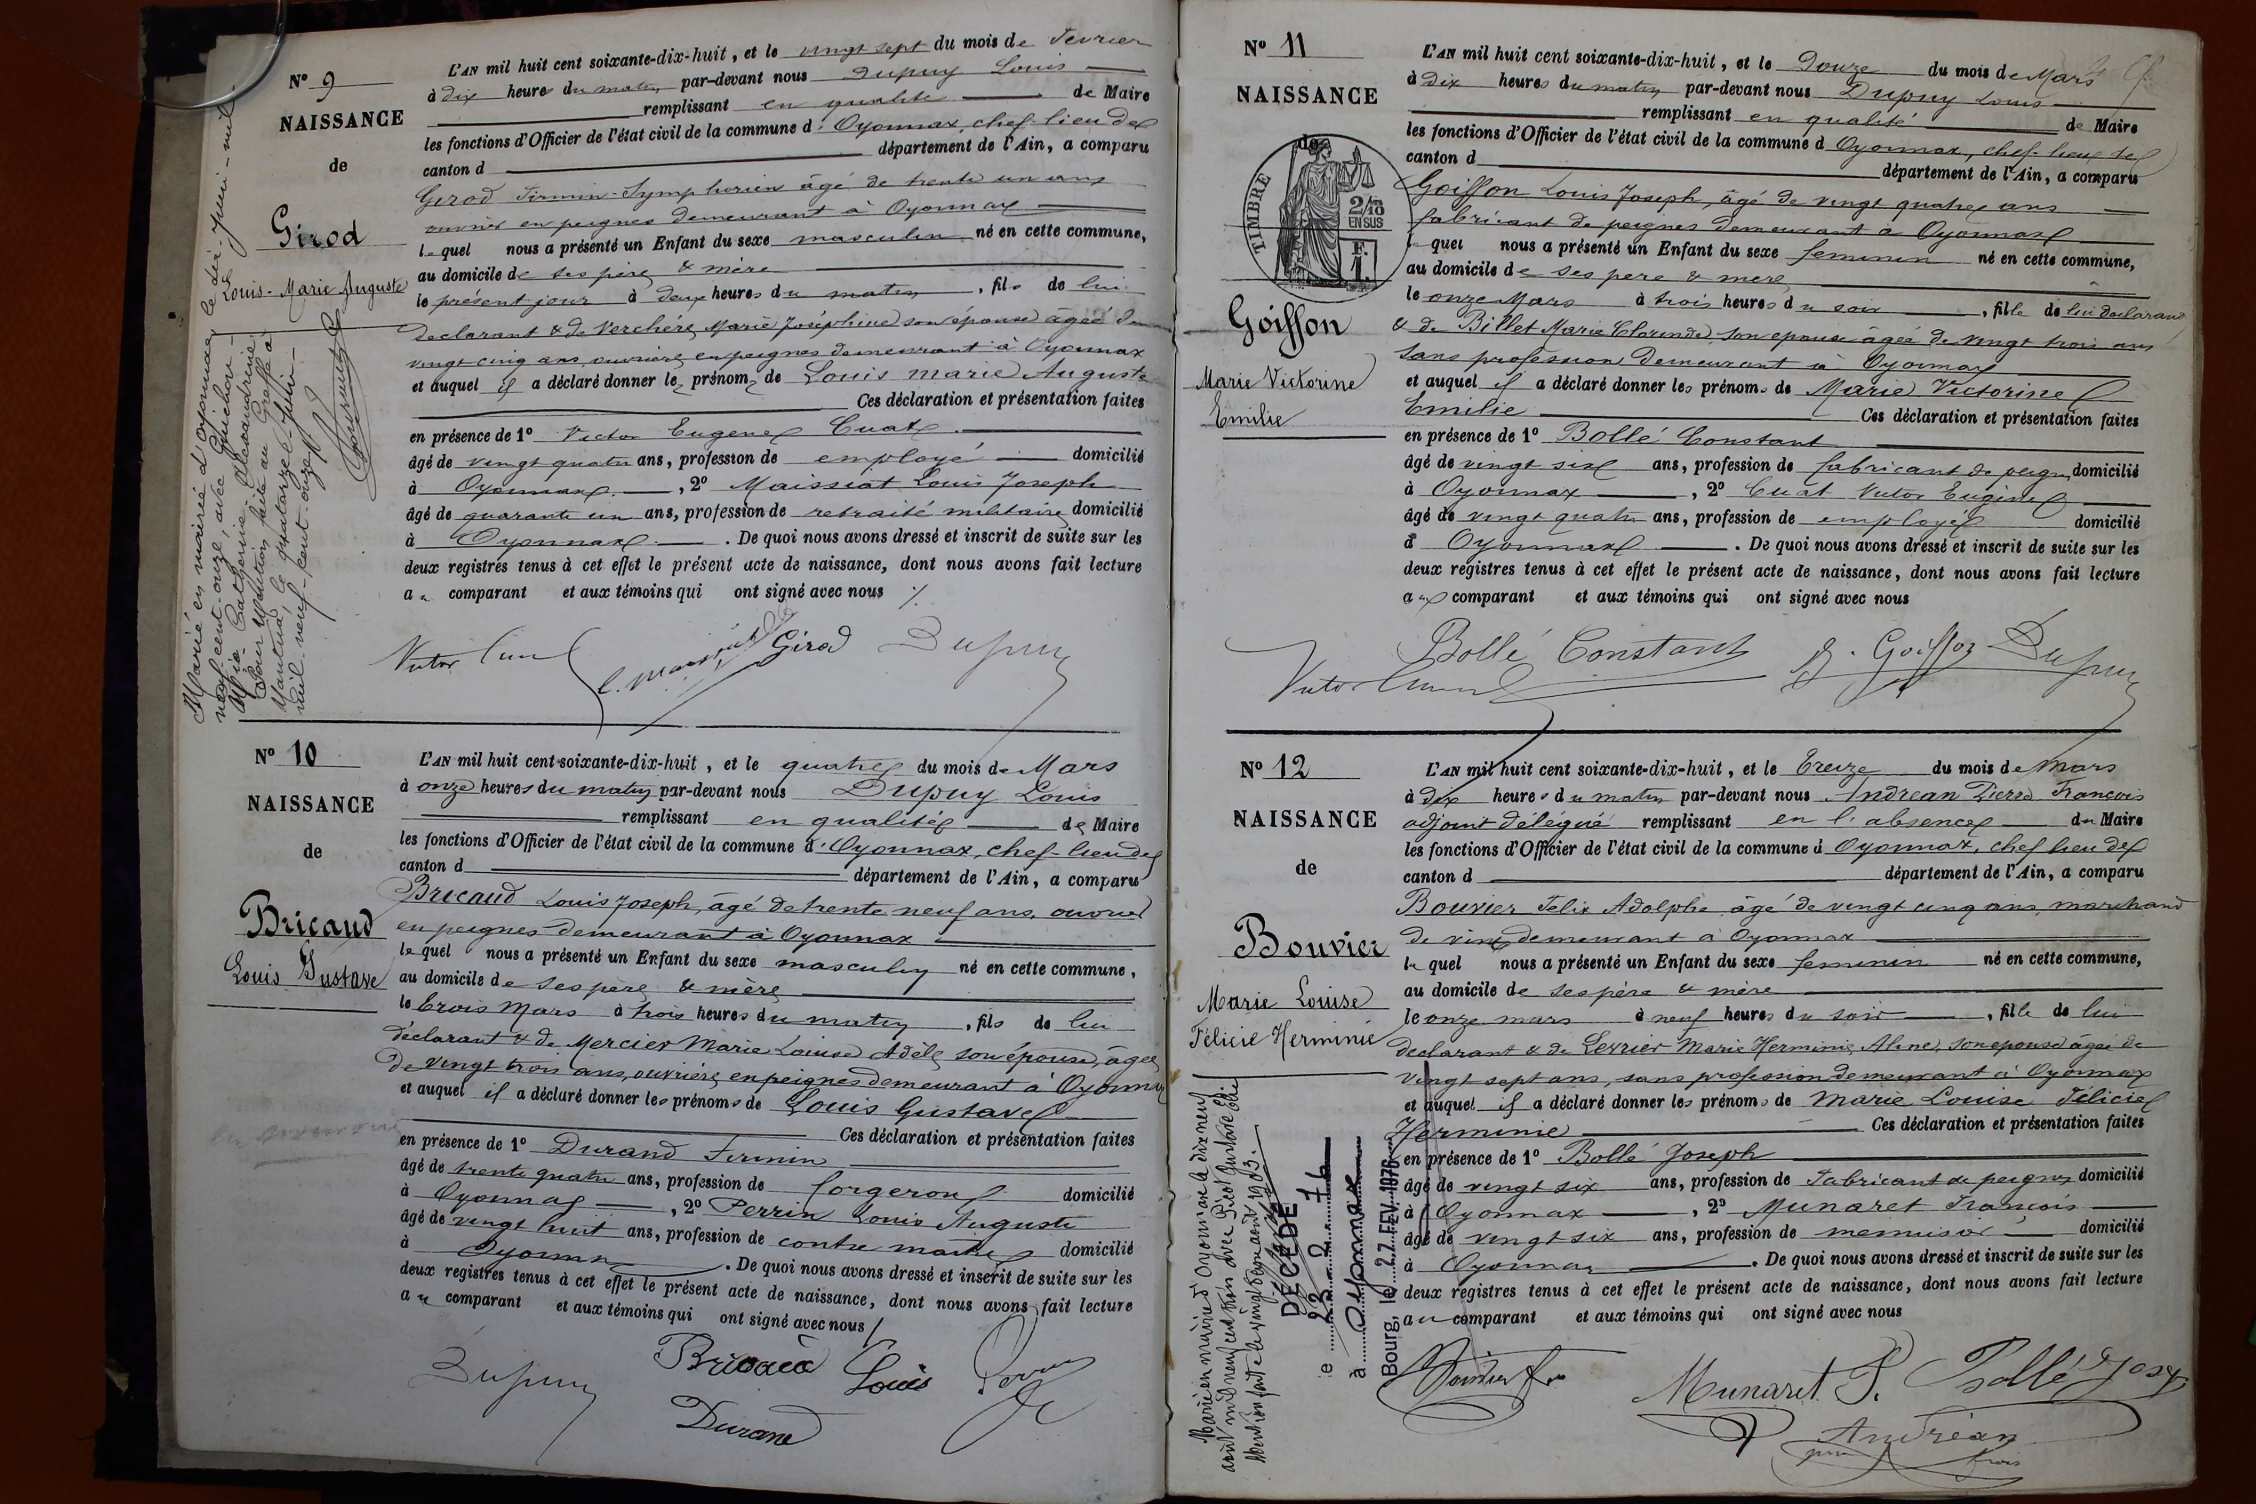 N° 9
NAISSANCE
de
Girod
Louis-Marie Auguste
L'AN mil huit cent soixante-dix-huit, et le vingt sept du mois de Fevrier
à dix heures du matin par-devant nous Dupuy Louis
remplissant en qualité de Maire
les fonctions d'Officier de l'état civil de la commune d'Oyonnax, chef-lieu de
canton d département de l'Ain, a comparu
Girod Firmin-Symphorien âgé de trente un ans
ouvrier en peignes demeurant à Oyonnax
lequel nous a présenté un Enfant du sexe masculin né en cette commune,
au domicile de ses père & mère
le présent jour à deux heures du matin, fils de lui
declarant & de Verchère Marie Joséphine son épouse agée de
vingt-cinq ans ouvrière en peignes demeurant à Oyonnax
et auquel il a déclaré donner les prénoms de Louis Marie Auguste
Ces déclaration et présentation faites
en présence de 1° Victor Eugene Cuat
âgé de vingt quatre ans, profession de employé domicilié
à Oyonnax, 2° Maissiat Louis Joseph
âgé de quarante un ans, profession de retraité militaire domicilié
à Oyonnax. De quoi nous avons dressé et inscrit de suite sur les
deux registres tenus à cet effet le présent acte de naissance, dont nous avons fait lecture
au comparant et aux témoins qui ont signé avec nous
Victor Cuat Girod Dupuy
Marié en mairie d'Oyonnax le dix-juin-mil
neuf-cent-onze, avec Guichon
Catherine Alexandrine
Pour mention faite au Greffe à
Nantua, le quatorze-Juin
mil-neuf-cent-onze
N° 10
NAISSANCE
de
Bricaud
Louis Gustave
L'AN mil huit cent soixante-dix-huit, et le quatre du mois de Mars
à onze heures du matin par-devant nous Dupuy Louis
remplissant en qualité de Maire
les fonctions d'Officier de l'état civil de la commune d'Oyonnax, chef-lieu de
canton d département de l'Ain, a comparu
Bricaud Louis Joseph, âgé de trente neuf ans, ouvrier
en peignes demeurant à Oyonnax
lequel nous a présenté un Enfant du sexe masculin né en cette commune,
au domicile de ses père & mère
le trois Mars à trois heures du matin, fils de lui
déclarant & de Mercier Marie Louise Adèle son épouse, âgée
de vingt trois ans, ouvrière en peignes demeurant à Oyonnax
et auquel il a déclaré donner les prénoms de Louis Gustave
Ces déclaration et présentation faites
en présence de 1° Durand Firmin
âgé de trente quatre ans, profession de forgeron domicilié
à Oyonnax, 2° Perrin Louis Auguste
âgé de vingt huit ans, profession de contre maitre domicilié
à Oyonnax. De quoi nous avons dressé et inscrit de suite sur les
deux registres tenus à cet effet le présent acte de naissance, dont nous avons fait lecture
au comparant et aux témoins qui ont signé avec nous
Dupuy Bricaud Louis Perrin
Durand
N° 11
NAISSANCE
de
TIMBRE
2/10
EN SUS
F.
1.
Goiffon
Marie Victorine
Emilie
L'AN mil huit cent soixante-dix-huit, et le Douze du mois de Mars
à dix heures du matin par-devant nous Dupuy Louis
remplissant en qualité de Maire
les fonctions d'Officier de l'état civil de la commune d Oyonnax, chef-lieu de
canton d département de l'Ain, a comparu
Goiffon Louis Joseph, âgé de vingt quatre ans
fabricant de peignes demeurant à Oyonnax
lequel nous a présenté un Enfant du sexe feminin né en cette commune,
au domicile de ses pere & mere
le onze Mars à trois heures du soir, fille de lui declarant
& de Billet Marie Clorinde, son epouse âgée de vingt trois ans
sans profession demeurant à Oyonnax
et auquel il a déclaré donner les prénoms de Marie Victorine
Emilie Ces déclaration et présentation faites
en présence de 1° Bollé Constant
âgé de vingt six ans, profession de fabricant de peignes domicilié
à Oyonnax, 2° Cuat Victor Eugène
âgé de vingt quatre ans, profession de employé domicilié
à Oyonnax. De quoi nous avons dressé et inscrit de suite sur les
deux registres tenus à cet effet le présent acte de naissance, dont nous avons fait lecture
aux comparant et aux témoins qui ont signé avec nous
Bollé Constant Goiffon Dupuy
Victor Cuat
N° 12
NAISSANCE
de
Bouvier
Marie Louise
Félicie Herminie
L'AN mil huit cent soixante-dix-huit, et le treize du mois de Mars
à dix heures du matin par-devant nous Andréan Pierre François
adjoint délégué remplissant en l'absence du Maire
les fonctions d'Officier de l'état civil de la commune d Oyonnax, chef lieu de
canton d département de l'Ain, a comparu
Bouvier Felix Adolphe âgé de vingt cinq ans, marchand
de vin demeurant à Oyonnax
lequel nous a présenté un Enfant du sexe feminin né en cette commune,
au domicile de ses père & mère
le onze mars à neuf heures du soir, fille de lui
declarant & de Levrier Marie Herminie Aline, son epouse âgée de
vingt sept ans, sans profession demeurant à Oyonnax
et auquel il a déclaré donner les prénoms de Marie Louise Félicie
Herminie Ces déclaration et présentation faites
en présence de 1° Bollé Joseph
âgé de vingt six ans, profession de Fabricant de peignes domicilié
à Oyonnax, 2° Munaret François
âgé de vingt six ans, profession de menuisier domicilié
à Oyonnax. De quoi nous avons dressé et inscrit de suite sur les
deux registres tenus à cet effet le présent acte de naissance, dont nous avons fait lecture
au comparant et aux témoins qui ont signé avec nous
Bouvier Munaret F. Bollé Josep
Andréan
Marié en mairie d'Oyonnax le dix neuf
août mil neuf cent trois avec Picot Gustave
Mention faite le vingt
DÉCÉDÉ
le 22.2.76
à Oyonnax
Bourg, le 27 FEV. 1976